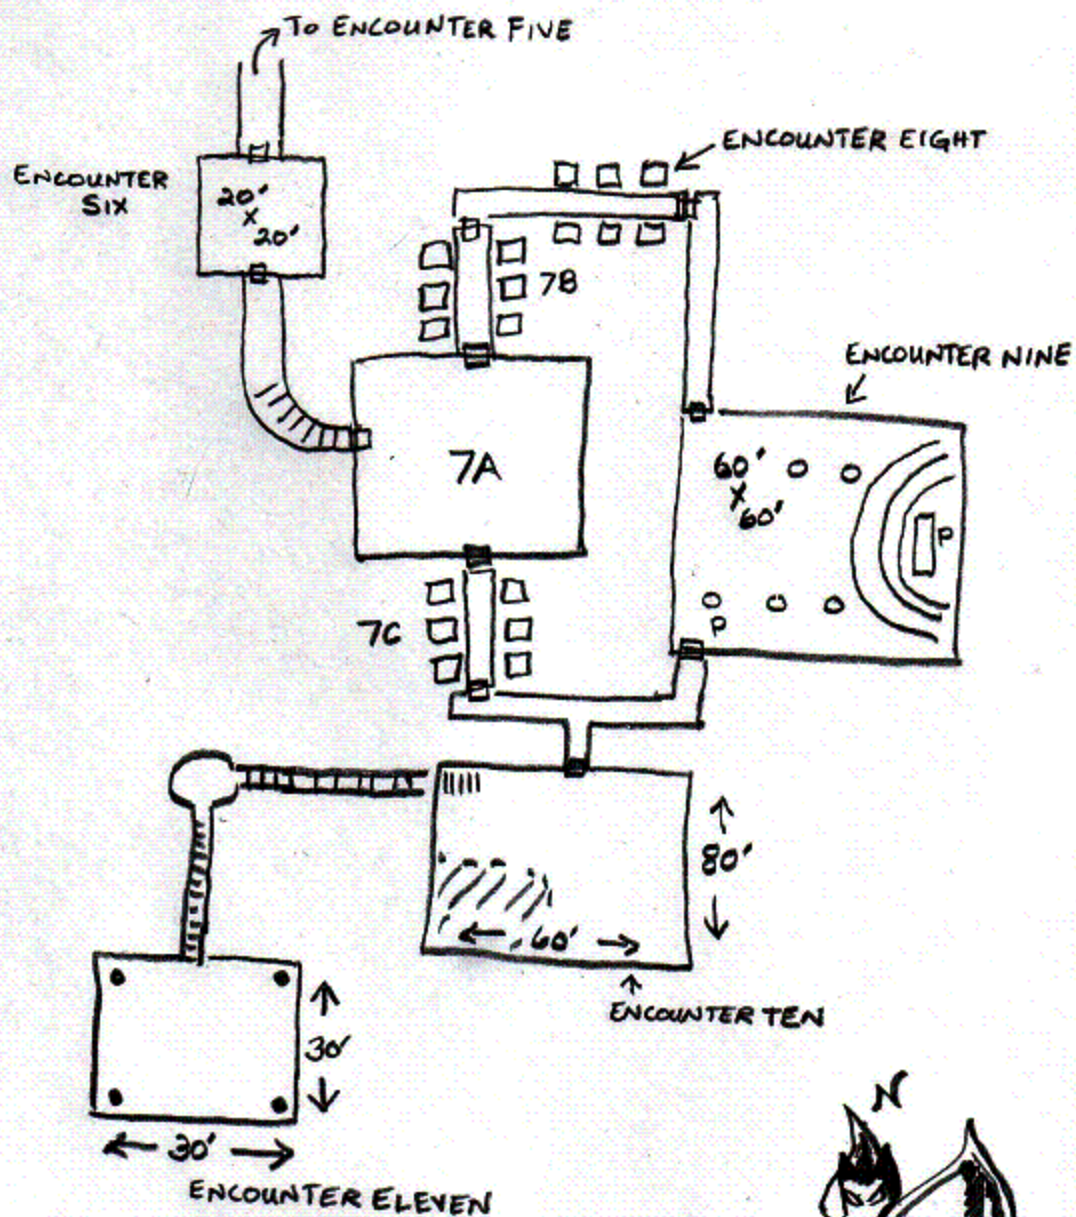 To ENCOUNTER FIVE
ENCOUNTER EIGHT
ENCOUNTER
SIX
20'
X
20'
7B
ENCOUNTER NINE
7A
60'
X
60'
P
P
7C
80'
60'
ENCOUNTER TEN
30'
30'
ENCOUNTER ELEVEN
N